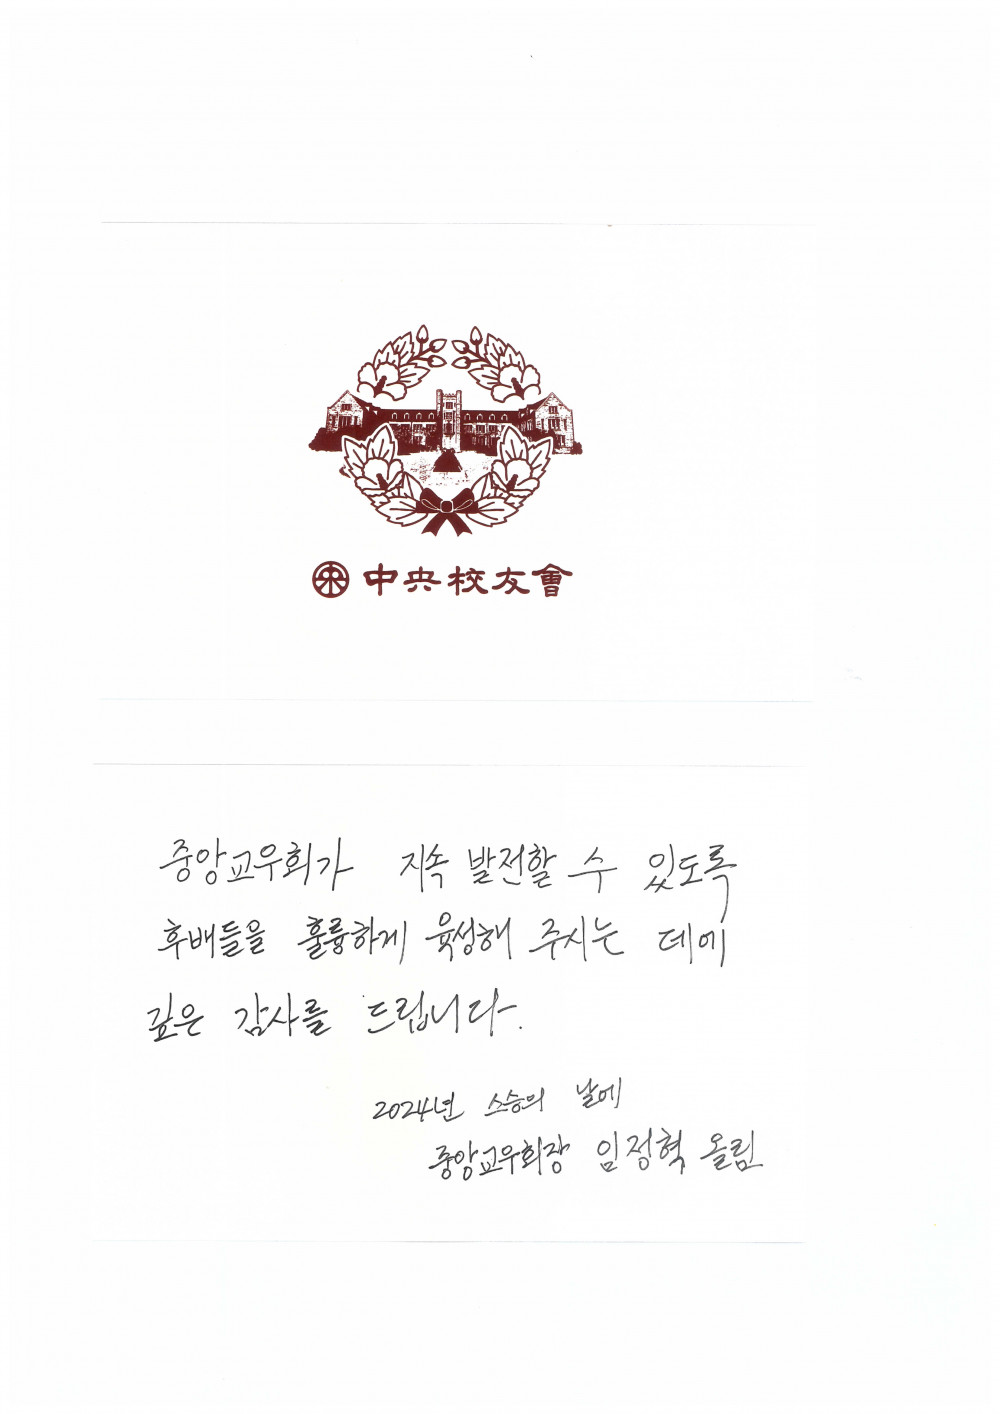 中央校友會
중앙교우회가 지속 발전할 수 있도록
후배들을 훌륭하게 육성해 주시는 데에
깊은 감사를 드립니다.
2024년 스승의 날에
중앙교우회장 임정혁 올림